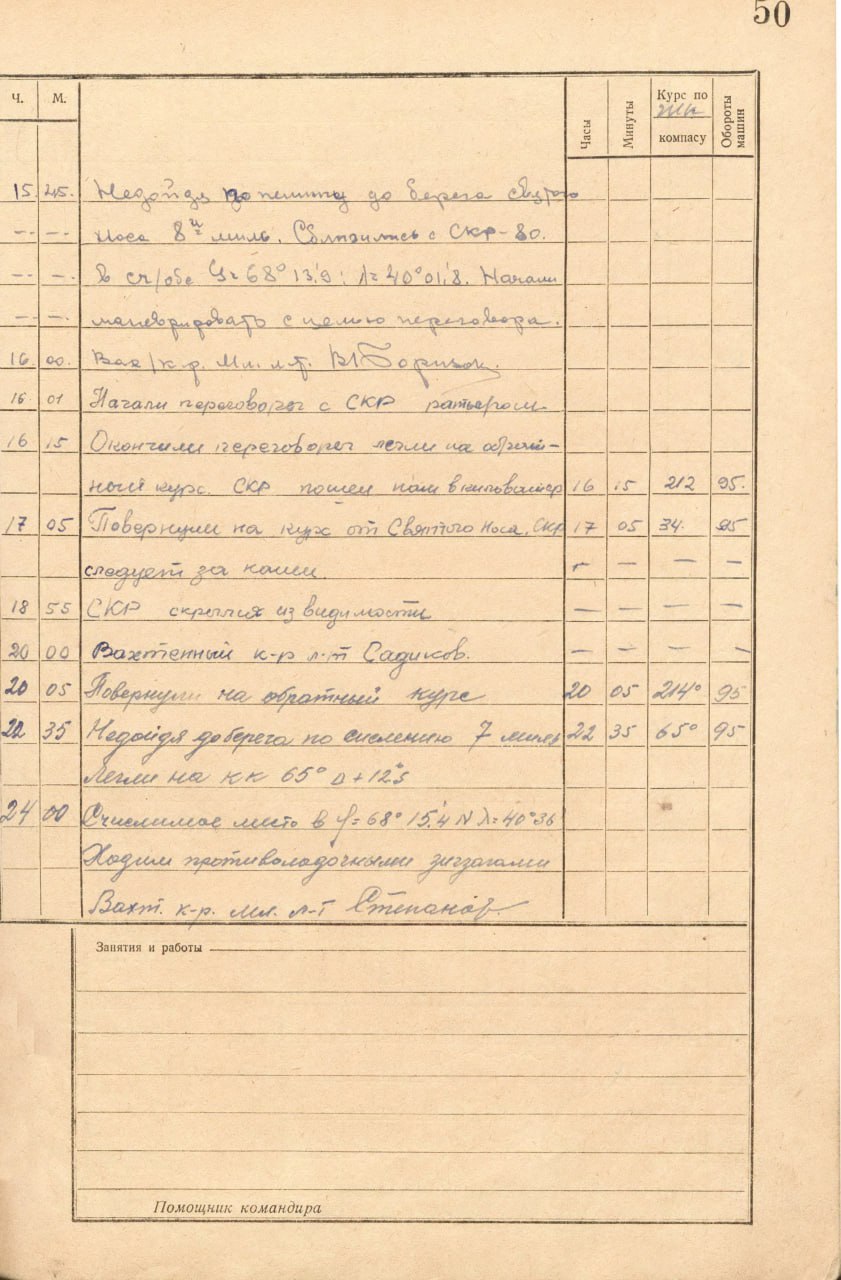 50
Ч. М. Часы Минуты Курс по компасу Обороты машин
15. 45. Недойдя по пеленгу до берега святого
— — Носа 8 миль. Сблизились с СКР-80.
— — в сч/обс φ=68° 13',9; λ=40°01',8. Начали
— — маневрировать с целью переговора.
16 00. Вах/к.р. Мл. л-т.
16 01 Начали переговоры с СКР ратьером
16 15 Окончили переговоры легли на обрат-
ный курс. СКР пошел нам в кильватер 16 15 212 95.
17 05 Повернули на курс от Святого Носа. СКР 17 05 34. 95
следует за нами. — — — —
18 55 СКР скрылся из видимости — — — —
20 00 Вахтенный к-р л-т Садиков. — — — —
20 05 Повернули на обратный курс 20 05 214° 95
22 35 Недойдя до берега по 7 миль 22 35 65° 95
Легли на КК 65° Δ+12°,5
24 00 Счислимое место в φ=68° 15',4 N λ=40°36'
Ходим противолодочными зигзагами
Вахт. к-р. мл. л-т Степанов
Занятия и работы
Помощник командира